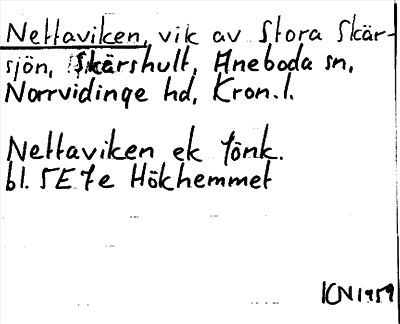 Nettaviken, vik av Stora Skär-
sjön, Skärshult, Aneboda sn,
Norrvidinge hd, Kron.l.
Nettaviken ek Jönk.
bl. 5E7e Hökhemmet
KN 1959